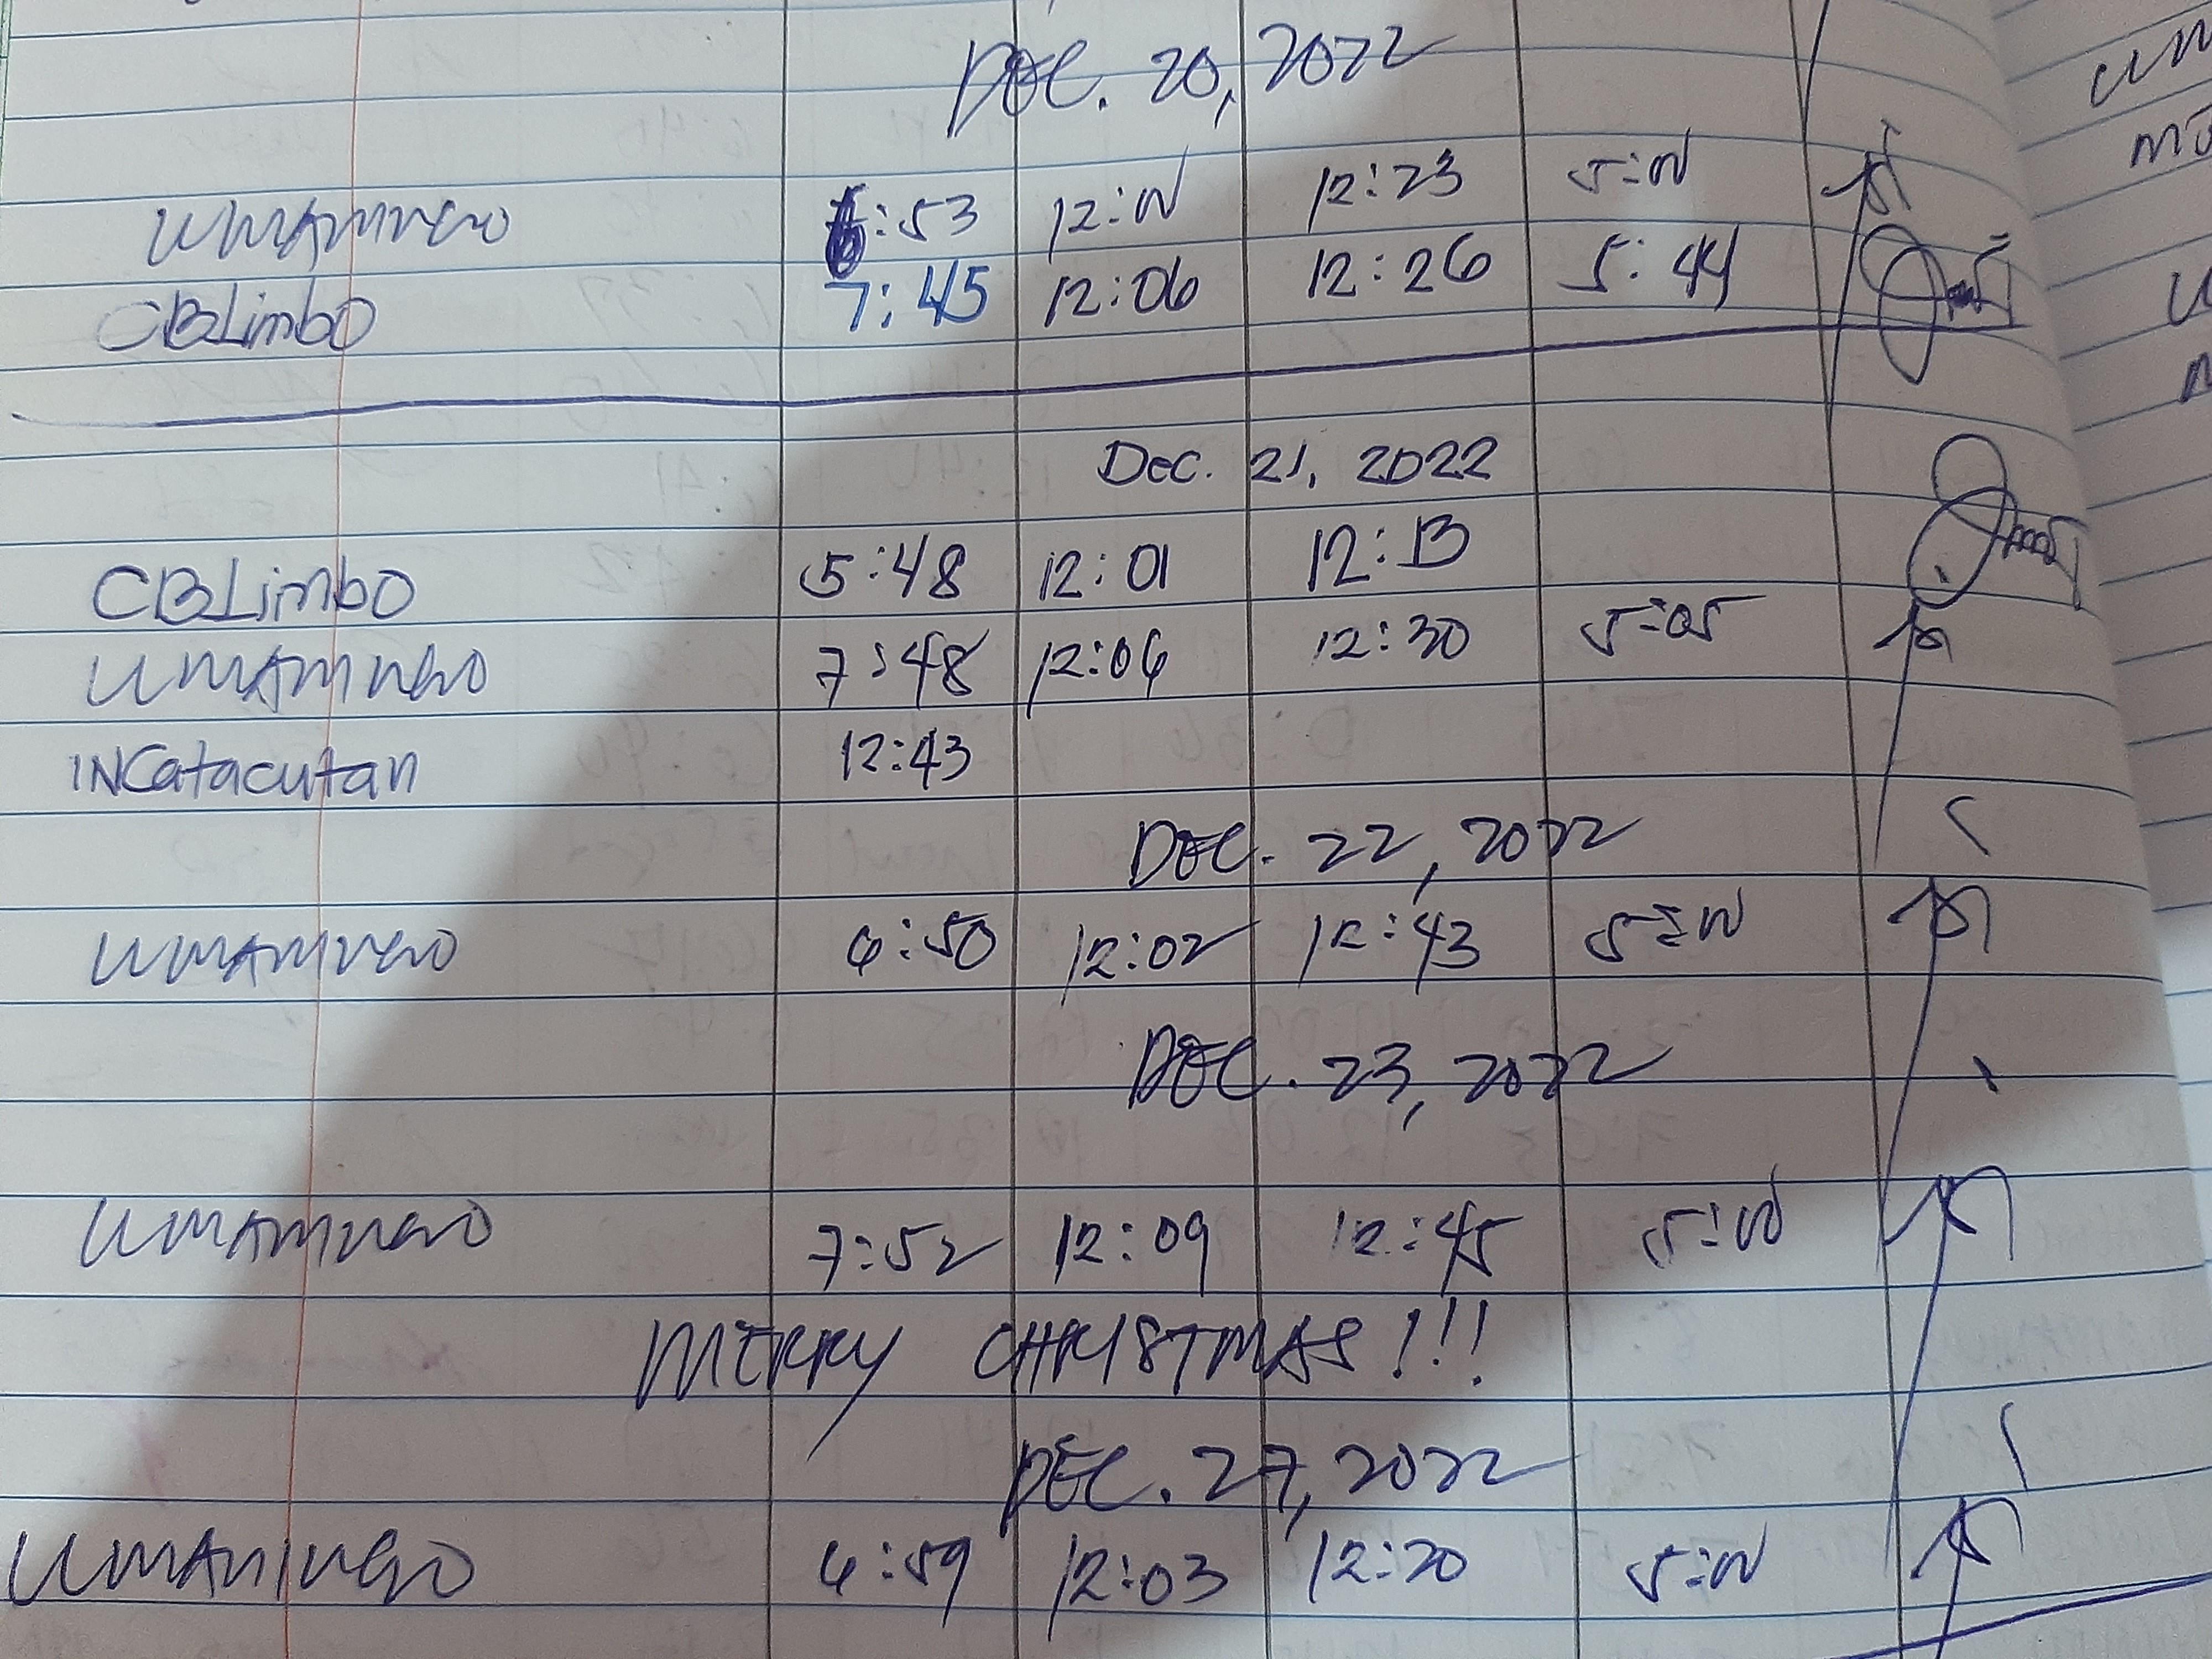 DEC. 20, 2022
:53 12:00 12:23 5:00
CBLimbo 7:45 12:06 12:26 5:44
Dec. 21, 2022
CBLimbo 5:48 12:01 12:13
7:48 12:06 12:30 5:05
INCatacutan 12:43
DEC. 22, 2022
6:50 12:02 12:43 5:00
DEC. 23, 2022
7:52 12:09 12:45 5:00
MERRY CHRISTMAS!!!
DEC. 27, 2022
6:59 12:03 12:20 5:00